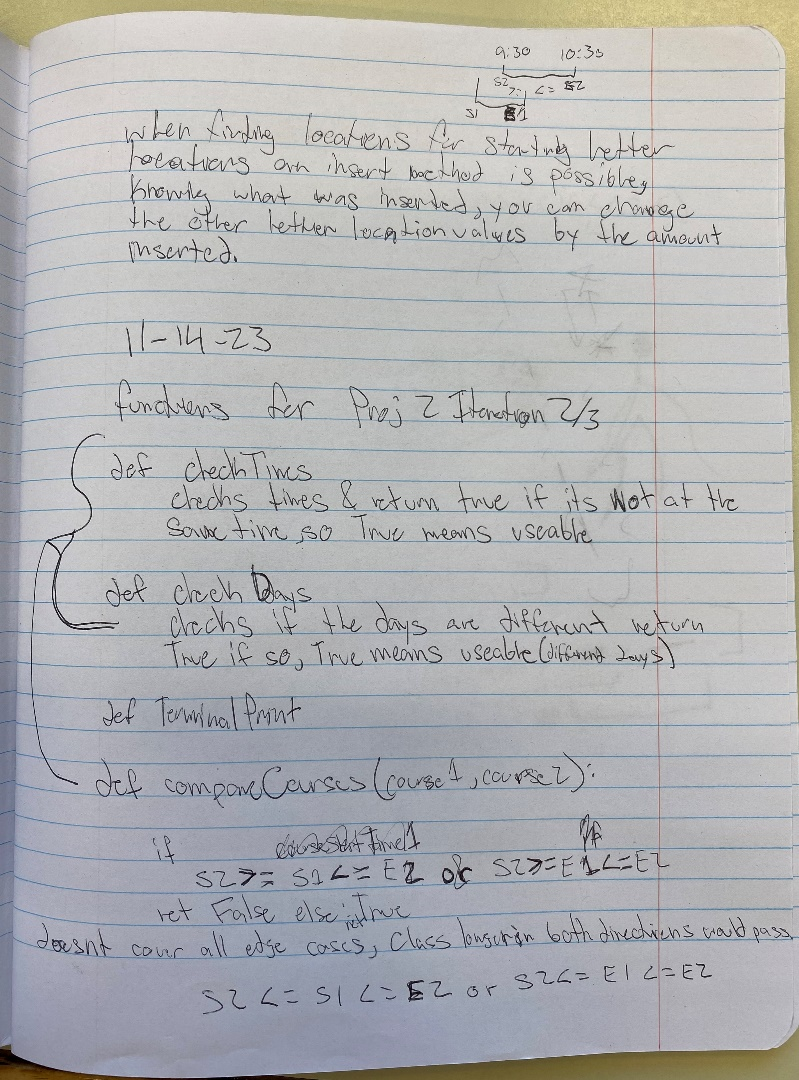 9:30 10:30
S2 >= <= E2
S1 E1
When finding locations for starting better
locations an insert method is possible,
knowing what was inserted, you can change
the other letter location values by the amount
inserted.
11-14-23
functions for Proj 2 Iteration 2/3
def checkTimes
checks times & return true if its Not at the
Same time, so True means useable
def check Days
checks if the days are different return
True if so, True means useable (different days)
def Terminal Print
def compareCourses (course1, course2):
if
S2 >= S1 <= E2 or S2 >= E1 <= E2
ret False else: ret True
doesnt cover all edge cases, Class longer in both directions would pass
S2 <= S1 <= E2 or S2 <= E1 <= E2